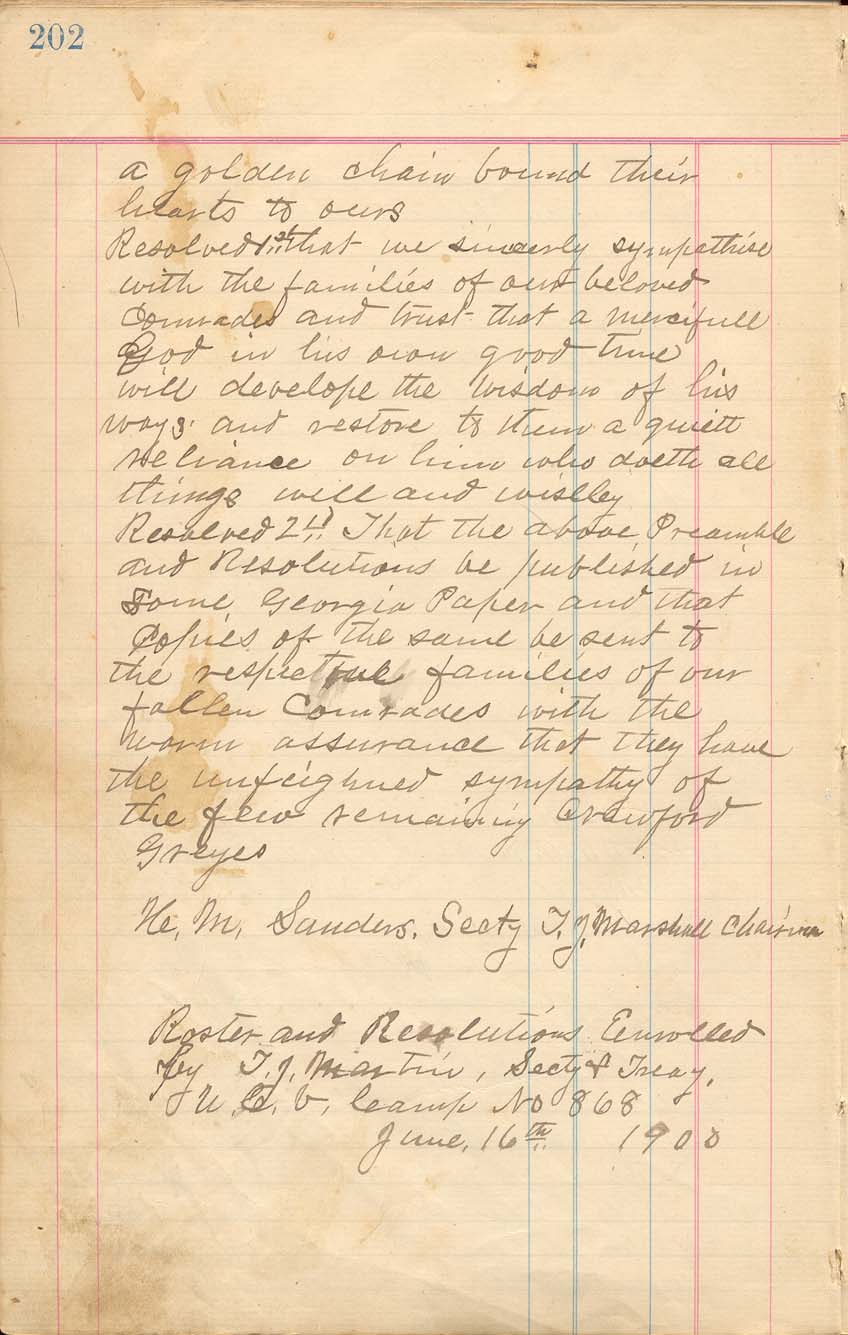 202
a golden chain bound their
hearts to ours
Resolved 1st that we sincerly sympathise
with the families of our beloved
Comrades and trust that a mercifull
God in his own good time
will develope the wisdom of his
ways and restore to them a quiett
reliance on him who doeth all
things well and wislley
Resolved 2d That the above Preamble
and Resolutions be published in
Some Georgia Paper and that
Copies of the same be sent to
the respective families of our
fallen Comrades with the
warm assurance that they have
the unfeighned sympathy of
the few remaining Crawford
Greyes
He. M. Sanders. Secty T. J. Marshall Chairman
Roster and Resolutions Eenrolled
by T. J. Martin, Secty & Treas,
U. C. V. Camp No 868
June, 16th 1900